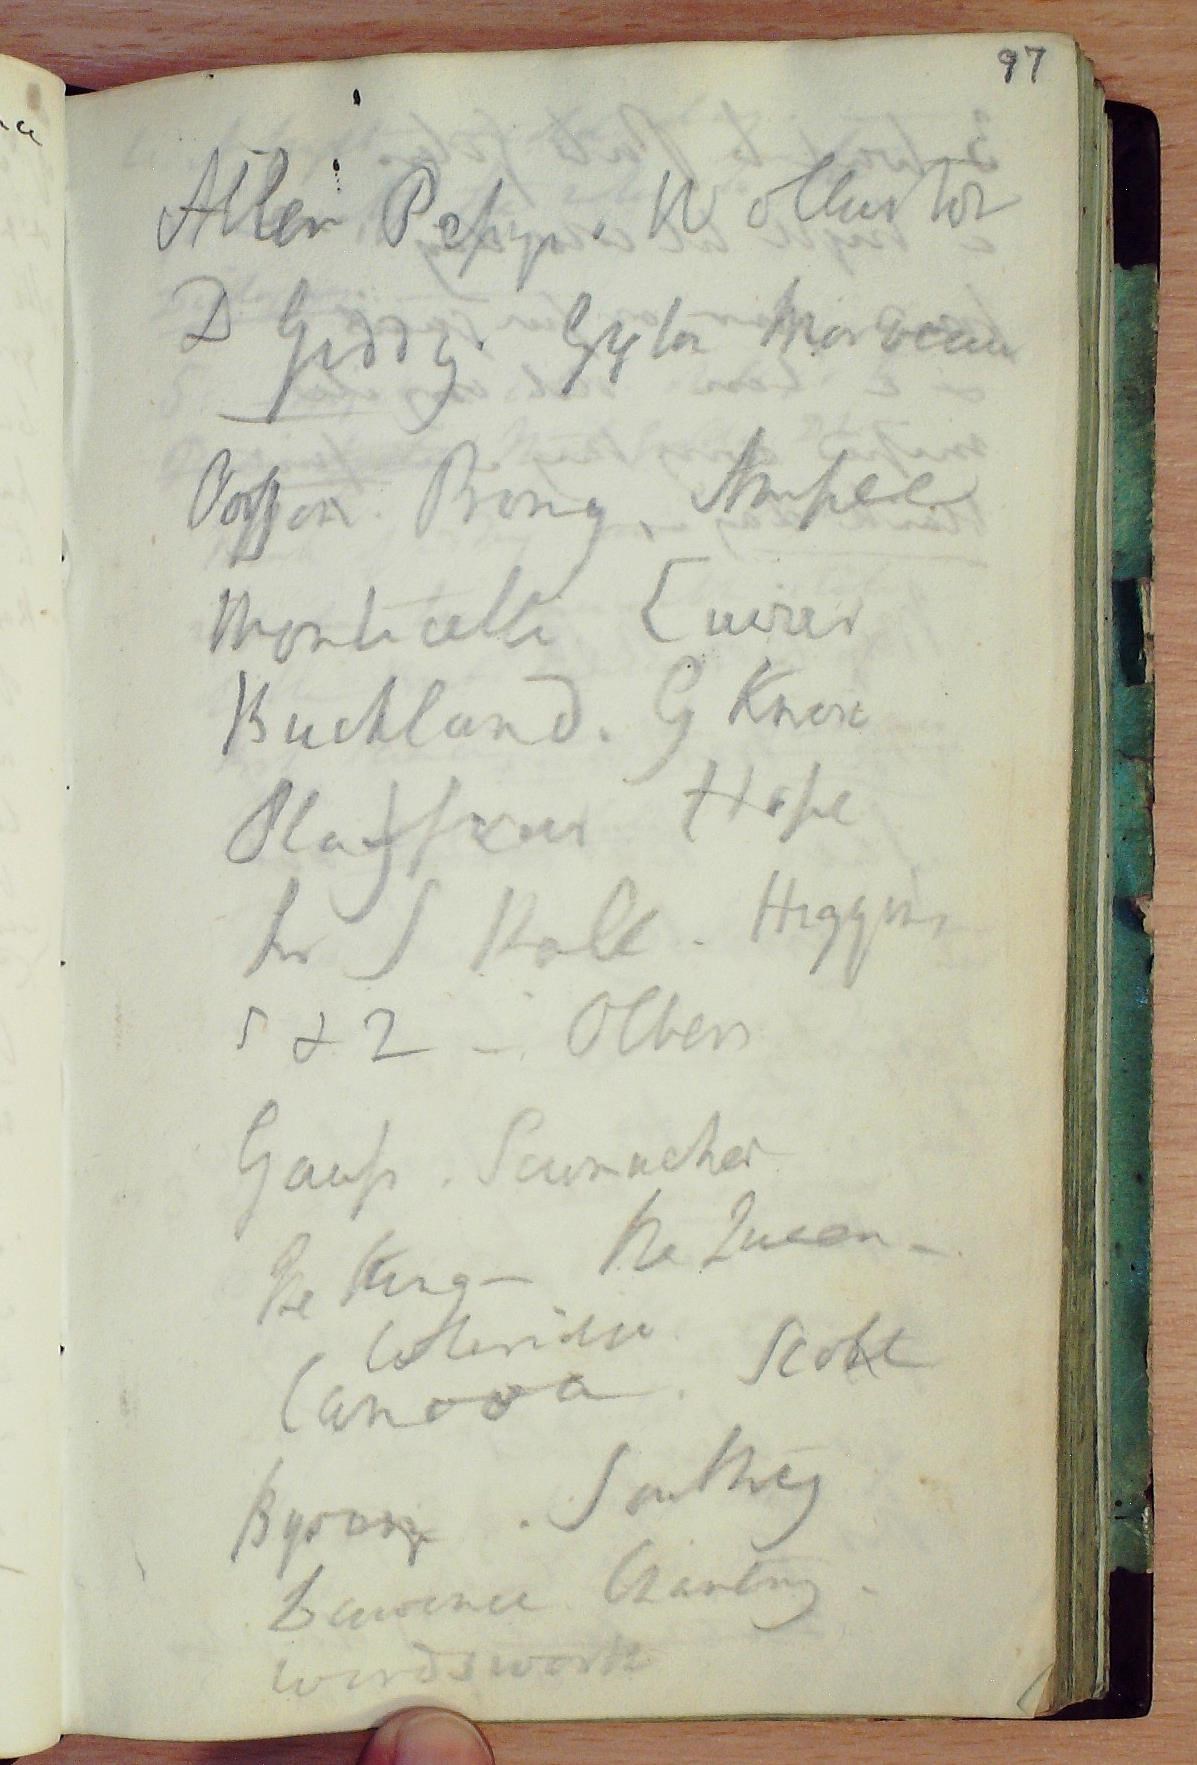 97
Allen Pepys. W ollaston
D Giddy. Gyton Morveau
Poisson. Brong, Ampere
Monticelli Cuvier
Buckland. G Knox
Playfair Hope
Sr J Hall. Higgins
Olbers
Gauss. Scumacher
The King — The Queen —
Coleridge
Canova. Scott
Byron. Southey
Lawrence Chantry.
Wordsworth